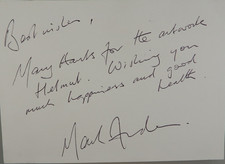 Best wishes,
Many thanks for the artwork
Helmut. Wishing you
much happiness and good
health.
Mark